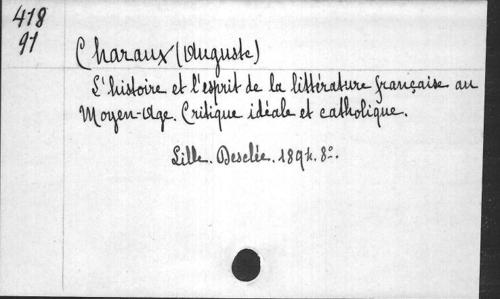 418
91
Charaux (Auguste)
L'histoire et l'esprit de la littérature française au
Moyen-Age. Critique idéale et catholique.
Lille. Desclée. 1894. 8º.